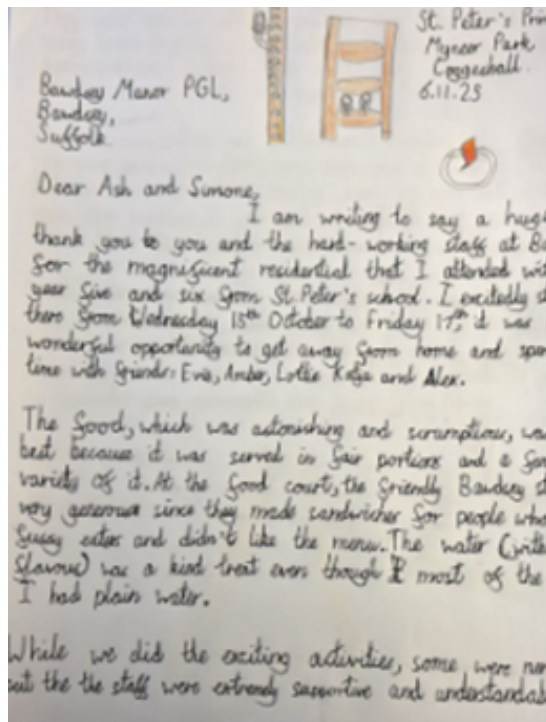 St. Peter's Pri
Myneer Park
Coggeshall.
6.11.25
Bawdsey Manor PGL,
Bawdsey,
Suffolk
Dear Ash and Simone,
I am writing to say a hug
thank you to you and the hard-working staff at Ba
for the magnificent residential that I attended wit
year five and six from St.Peter's school. I excitedly st
there from Wednesday 15th October to Friday 17th, it was
wonderful opportunity to get away from home and spen
time with friends: Evie, Amber, Lottie Katja and Alex.
The food, which was astonishing and scrumptious, wa
best because it was served in fair portions and a
variety of it. At the food court, the friendly Bawdsey st
very generous since they made sandwiches for people who
fussy eaters and didn't like the menu. The water (with
flavour) was a kind treat even though I most of the
I had plain water.
While we did the exciting activities, some were ner
but the the staff were extremely supportive and understandab